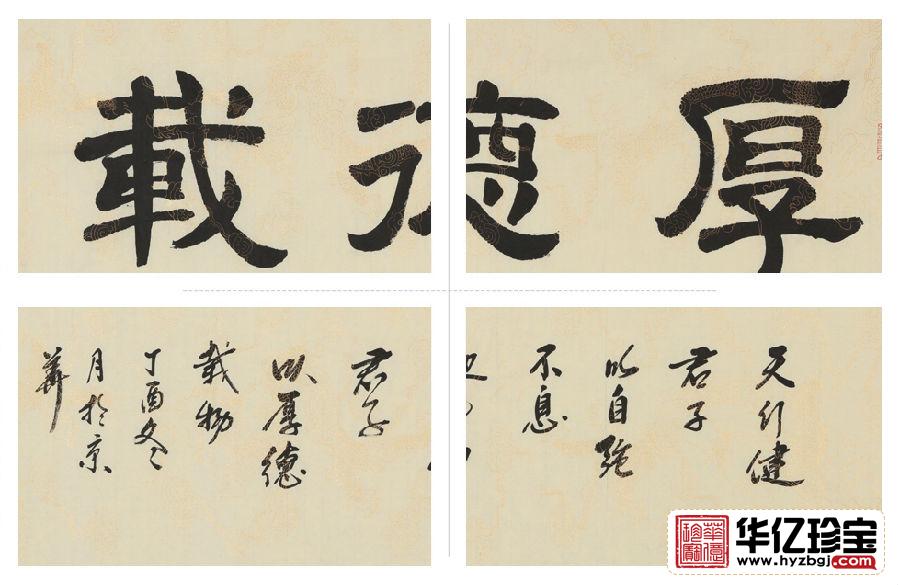 厚德載
天行健
君子
以自強
不息
君子
以厚德
載物
丁酉冬
月於京
華
華億珍寶
华亿珍宝
www.hyzbgj.com